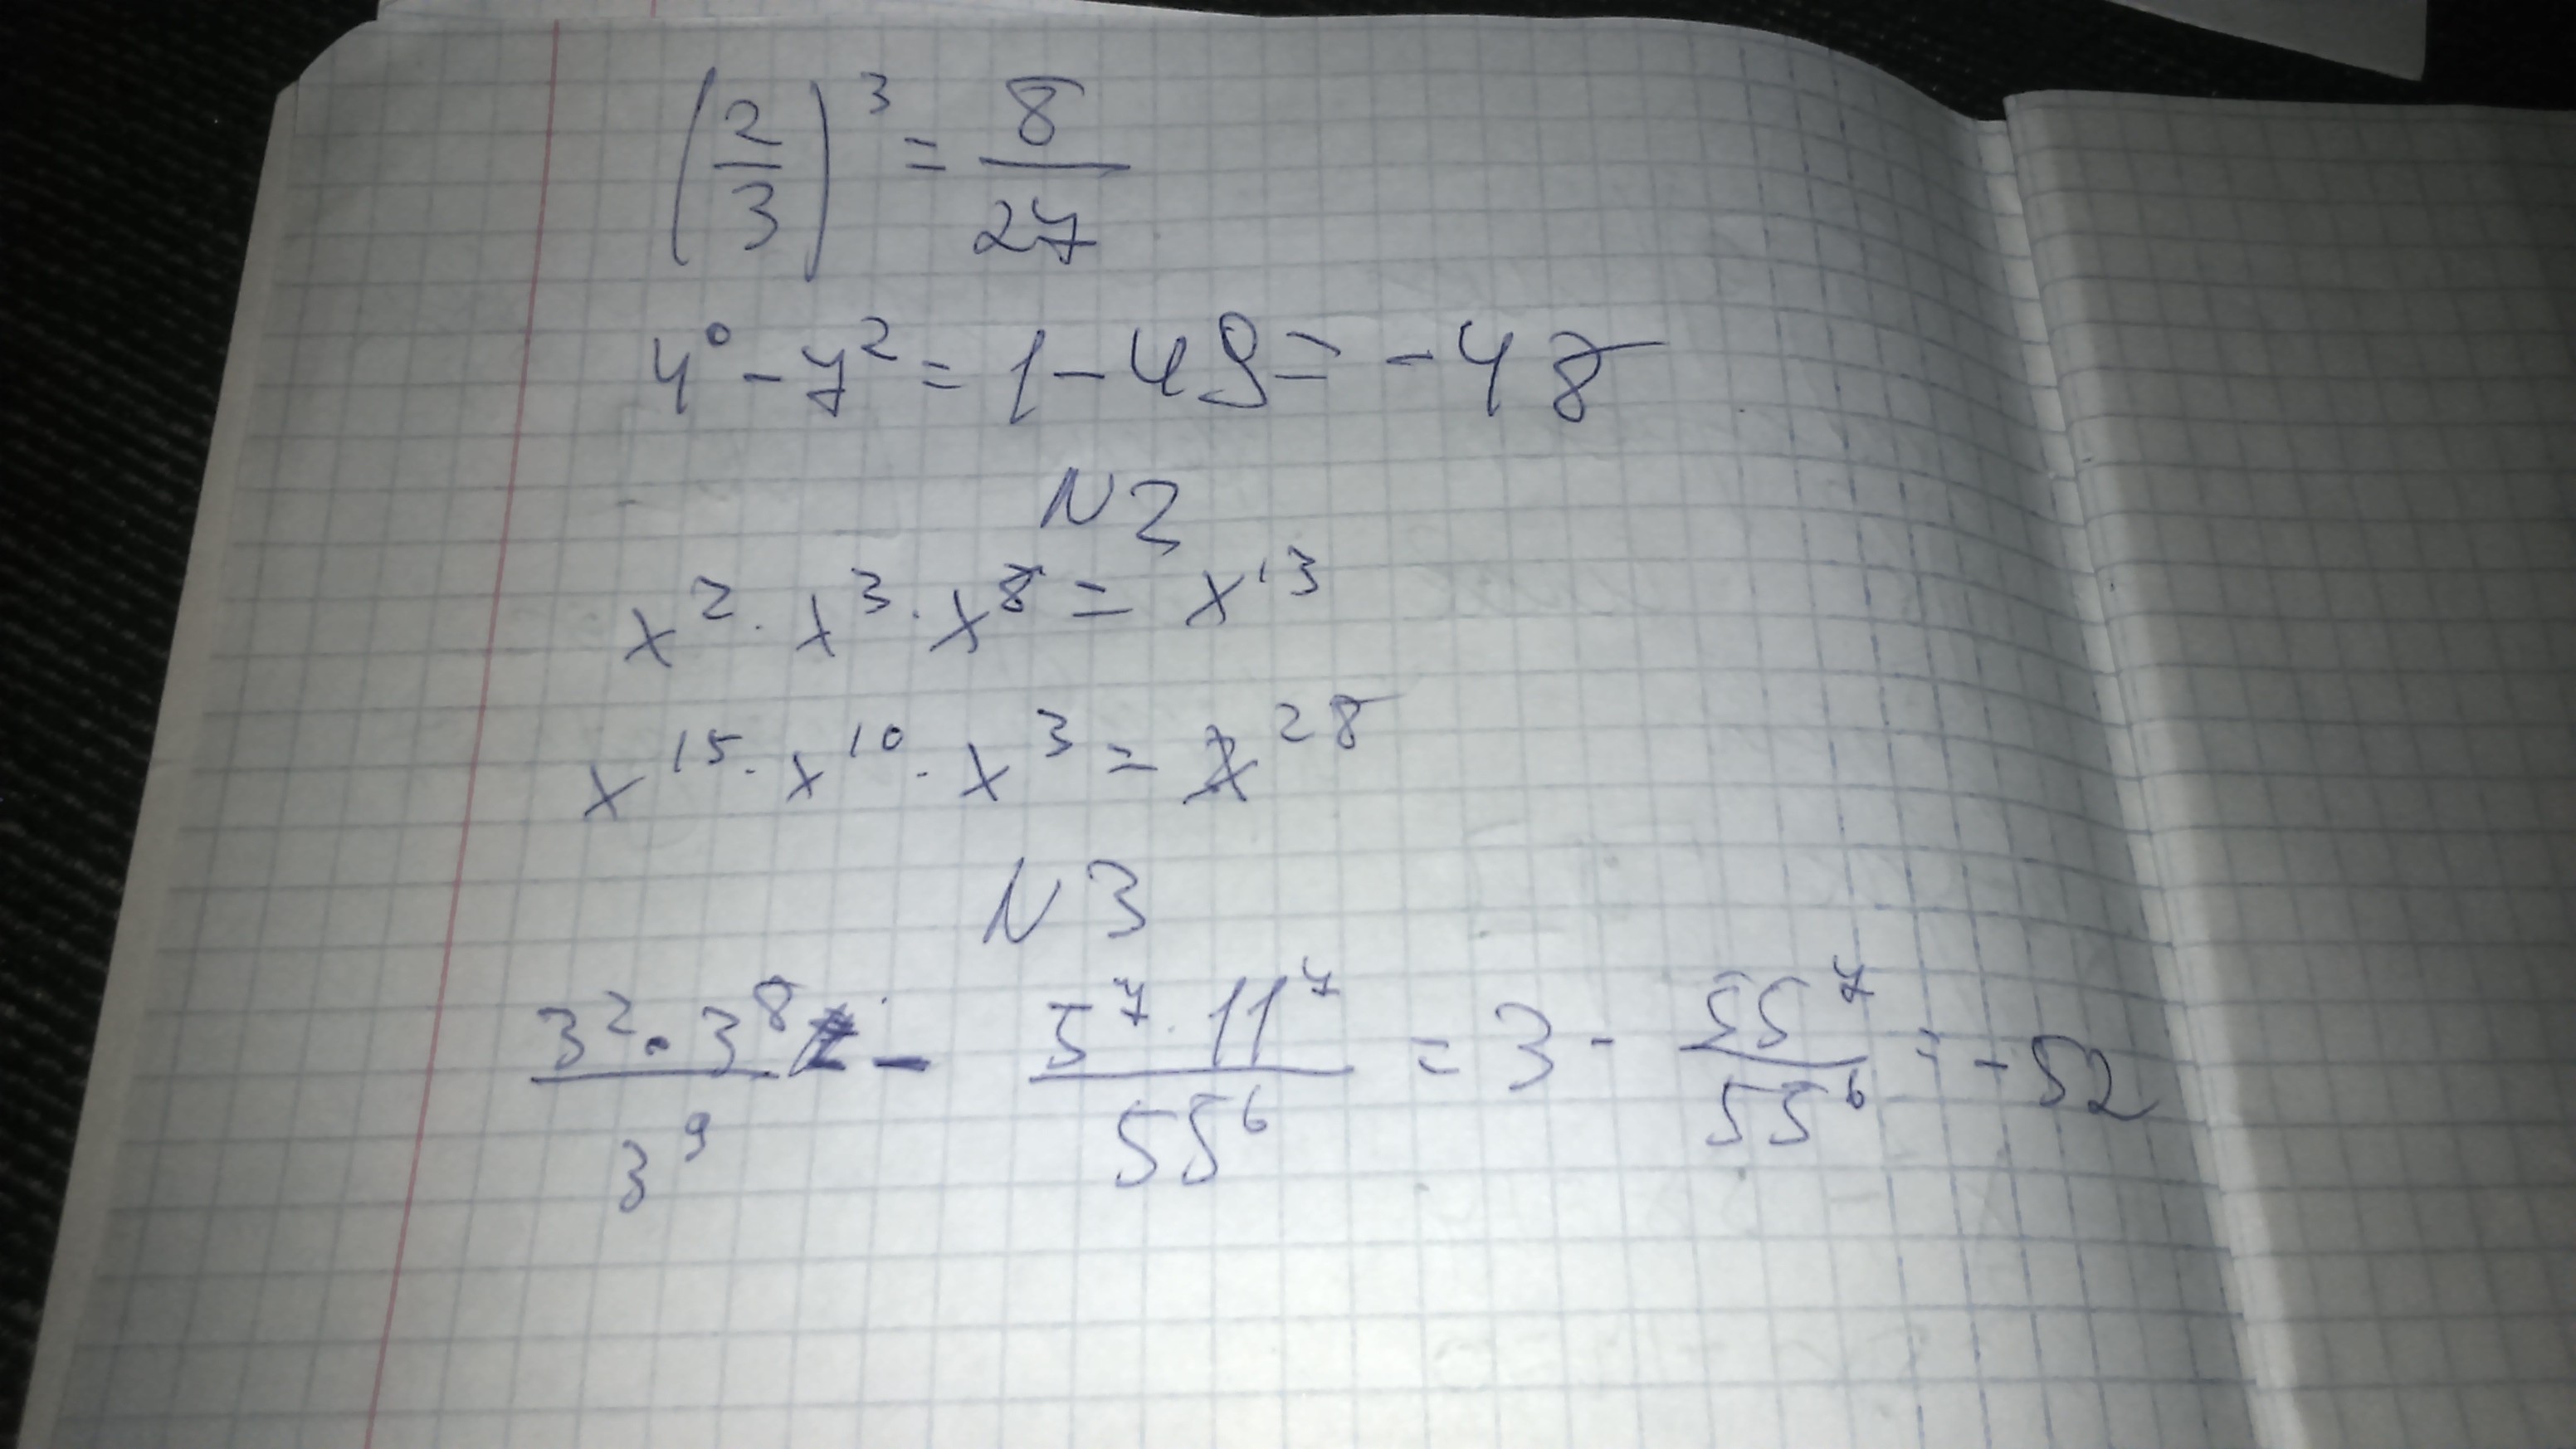 (2/3)³ = 8/27
4⁰ - 7² = 1 - 49 = -48
N2
x² · x³ · x⁸ = x¹³
x¹⁵ · x¹⁰ · x³ = x²⁸
N3
3² · 3⁸ / 3⁹ - 5⁷ · 11⁷ / 55⁶ = 3 - 55⁷ / 55⁶ = -52